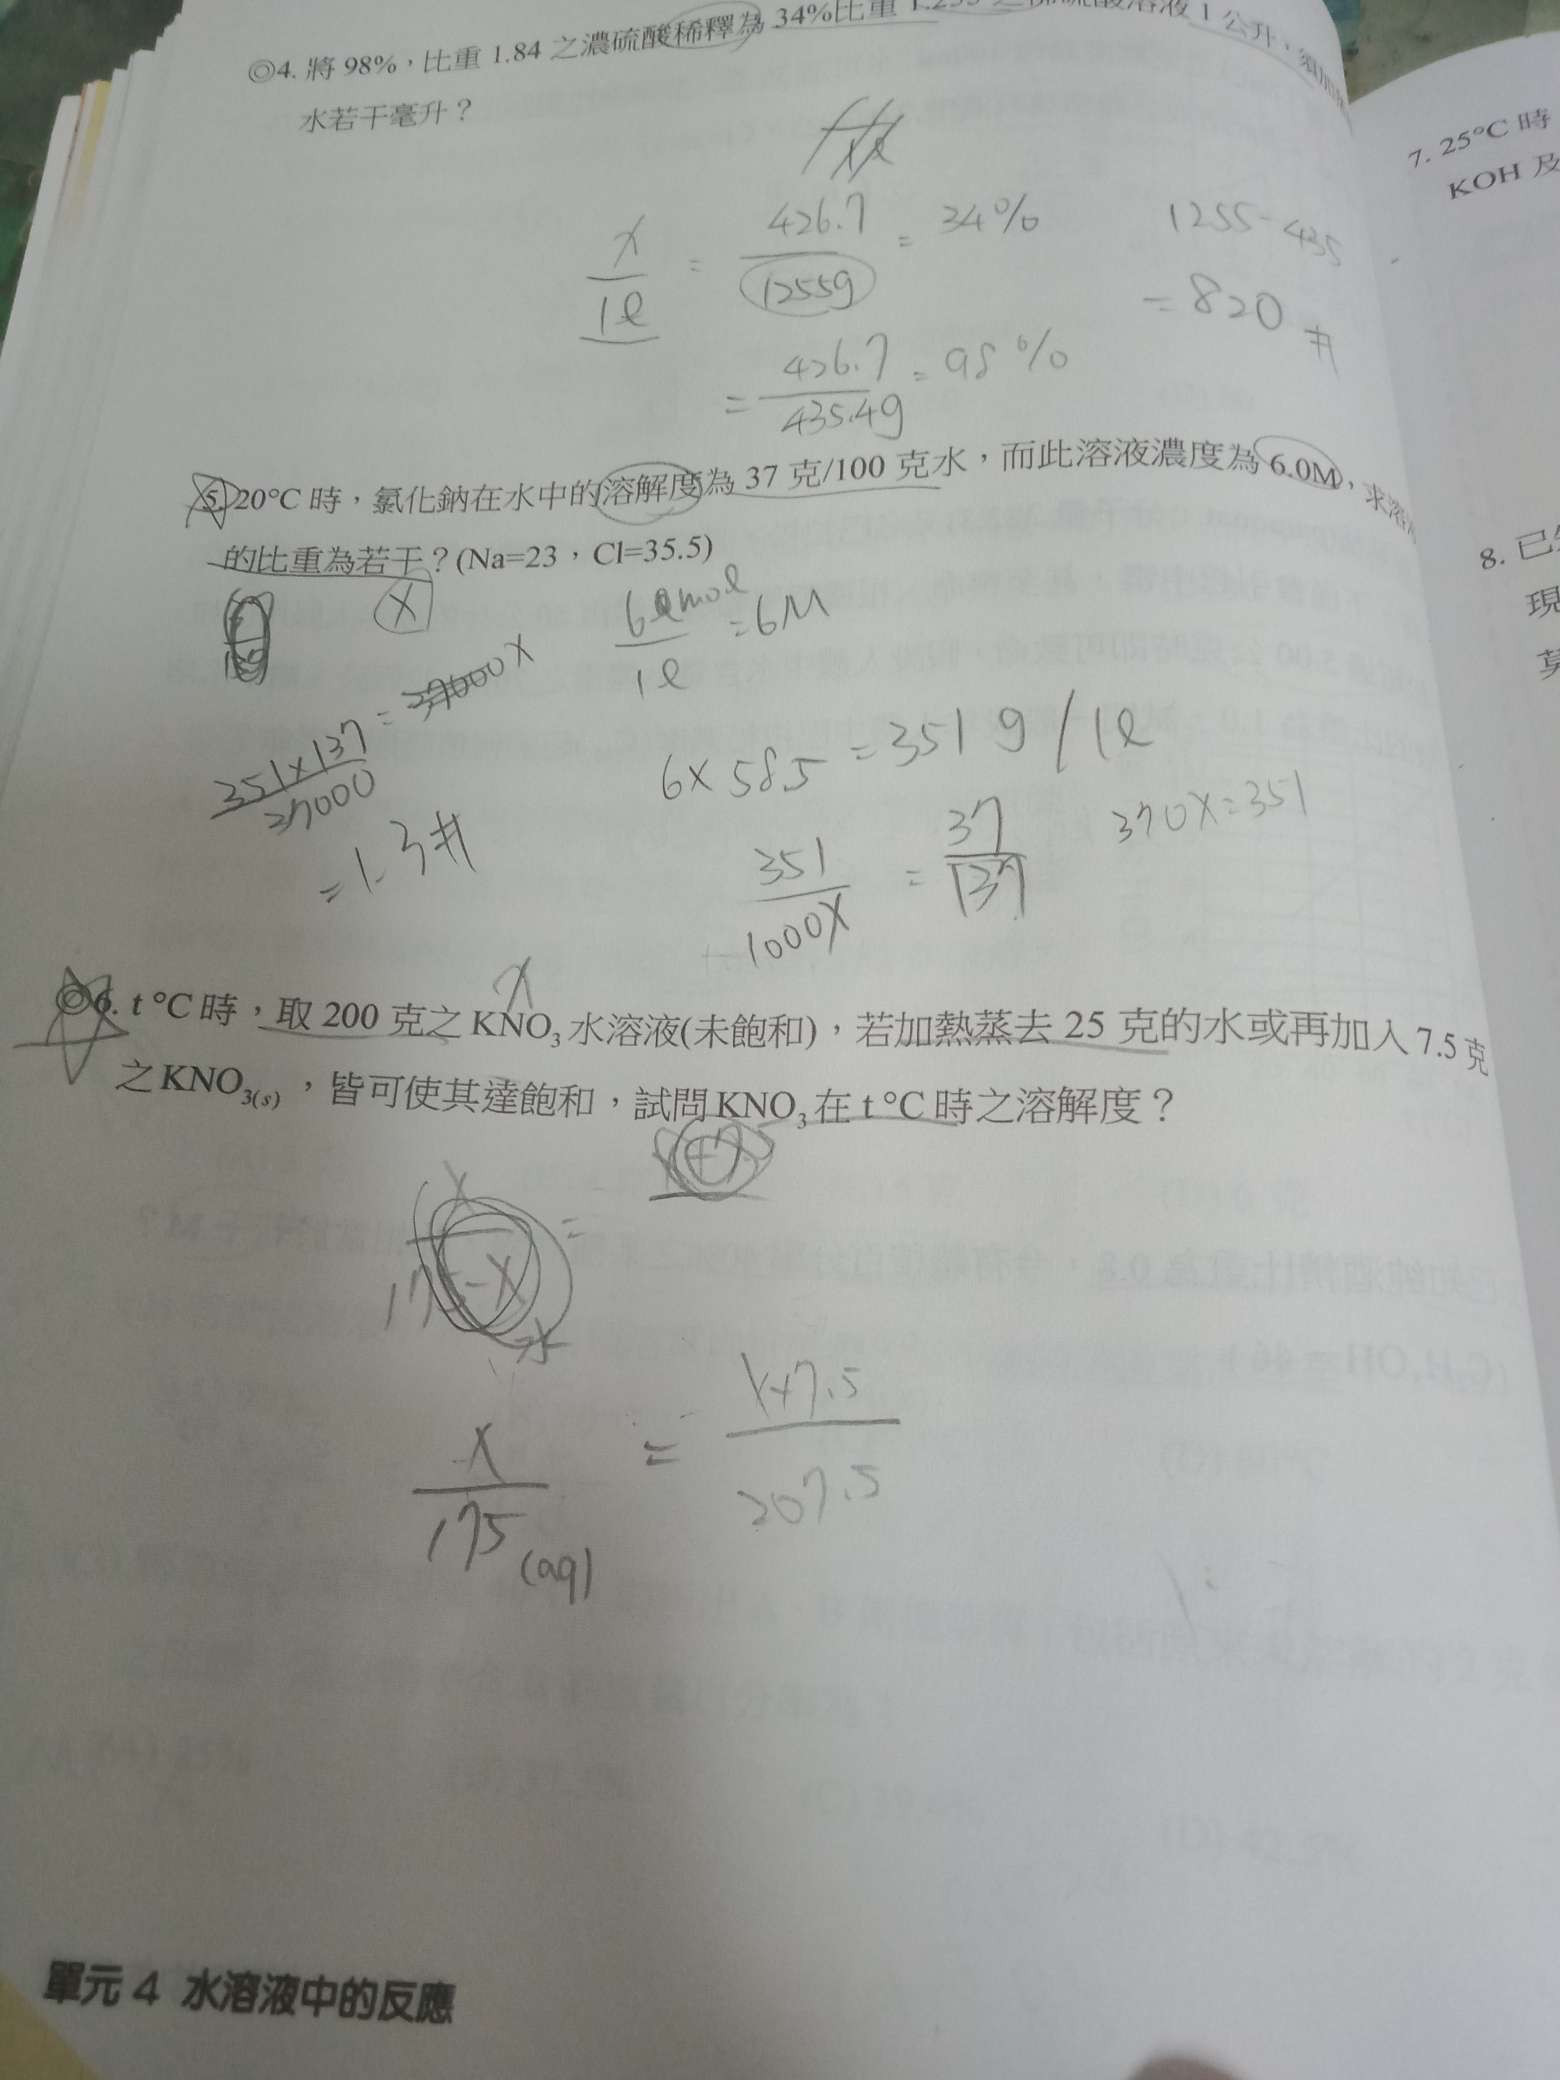 ◎4. 將 98%，比重 1.84 之濃硫酸稀釋為 34%比重 1.255 之稀硫酸溶液 1 公升，須加
水若干毫升？
x/1ℓ = 426.7/1255g = 34%
1255-435
= 820 #
= 426.7/435.4g = 98%
5. 20°C 時，氯化鈉在水中的溶解度為 37 克/100 克水，而此溶液濃度為 6.0M，求溶
的比重為若干？(Na=23，Cl=35.5)
x
6 mol/1ℓ = 6M
351×137/37000 = 37000x
= 1.3 #
6×58.5 = 351 g / 1ℓ
351/1000x = 37/137
370x=351
x
◎6. t °C 時，取 200 克之 KNO₃ 水溶液(未飽和)，若加熱蒸去 25 克的水或再加入 7.5 克
之 KNO₃₍ₛ₎，皆可使其達飽和，試問 KNO₃ 在 t °C 時之溶解度？
x/175-x =
水
x/175(aq) = x+7.5/207.5
單元 4 水溶液中的反應
7. 25°C 時
KOH 及
8. 已
現
莫